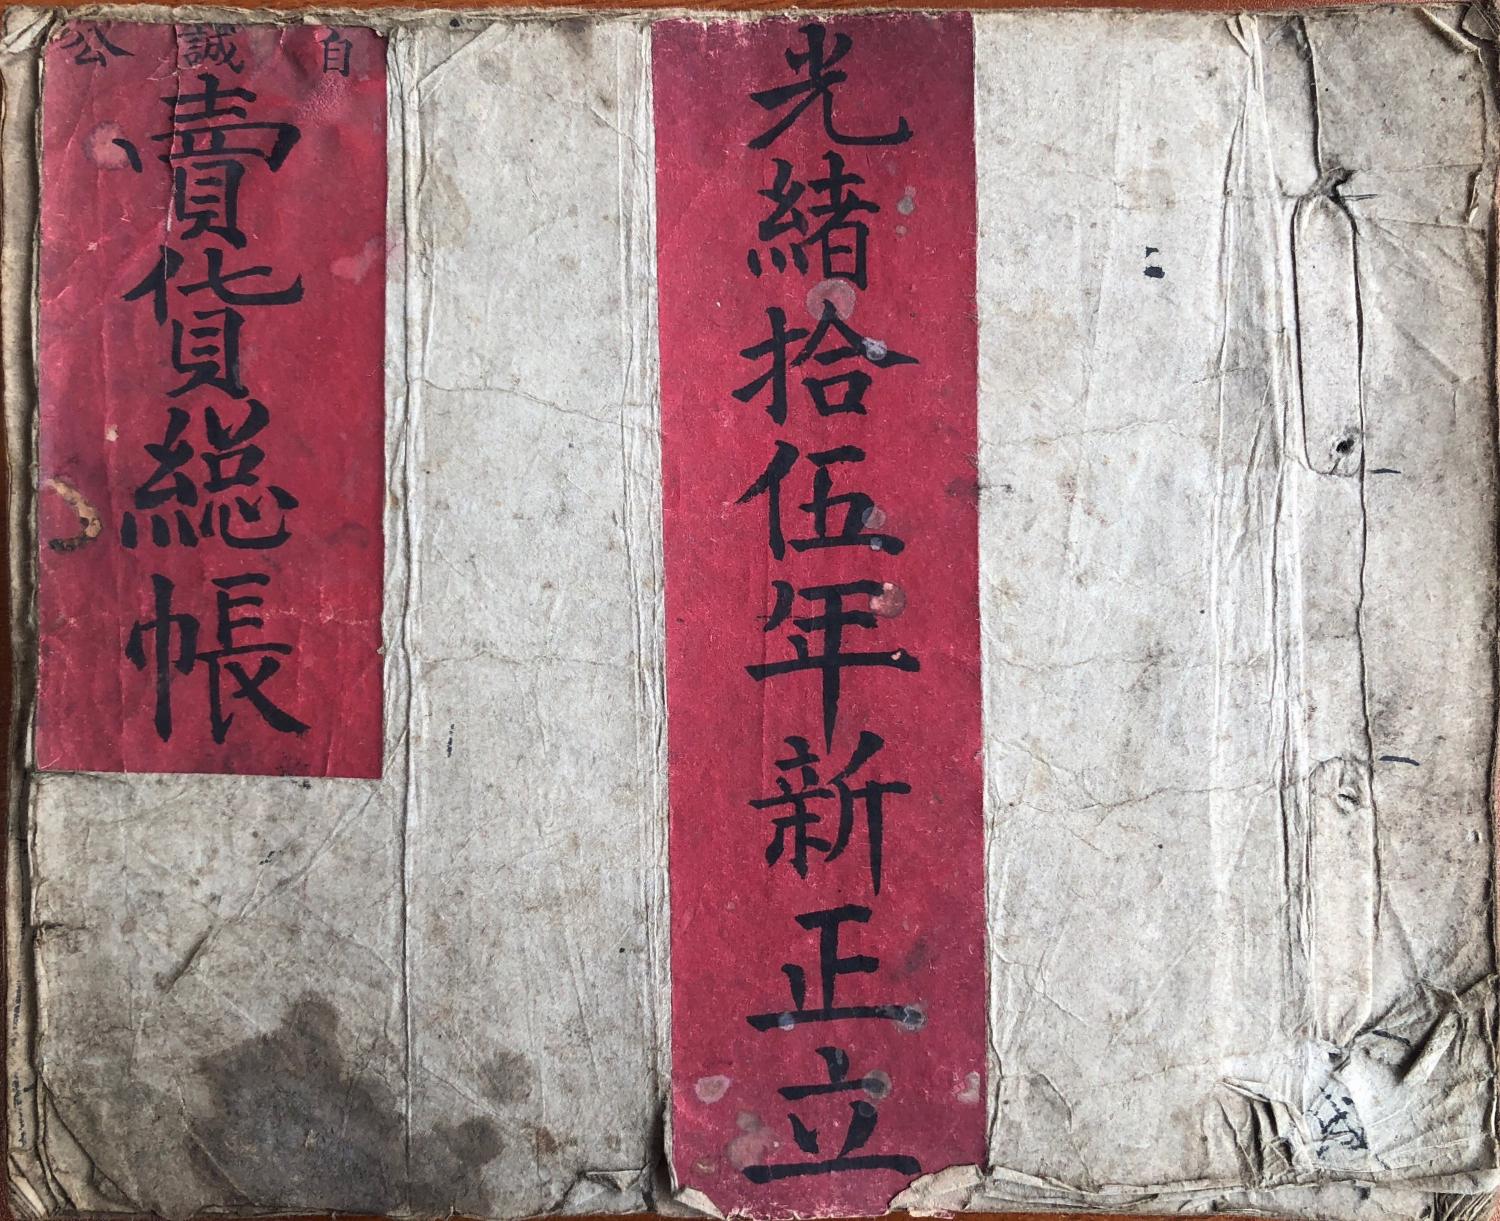 光緒拾伍年新正立
自誠公
賣貨総帳